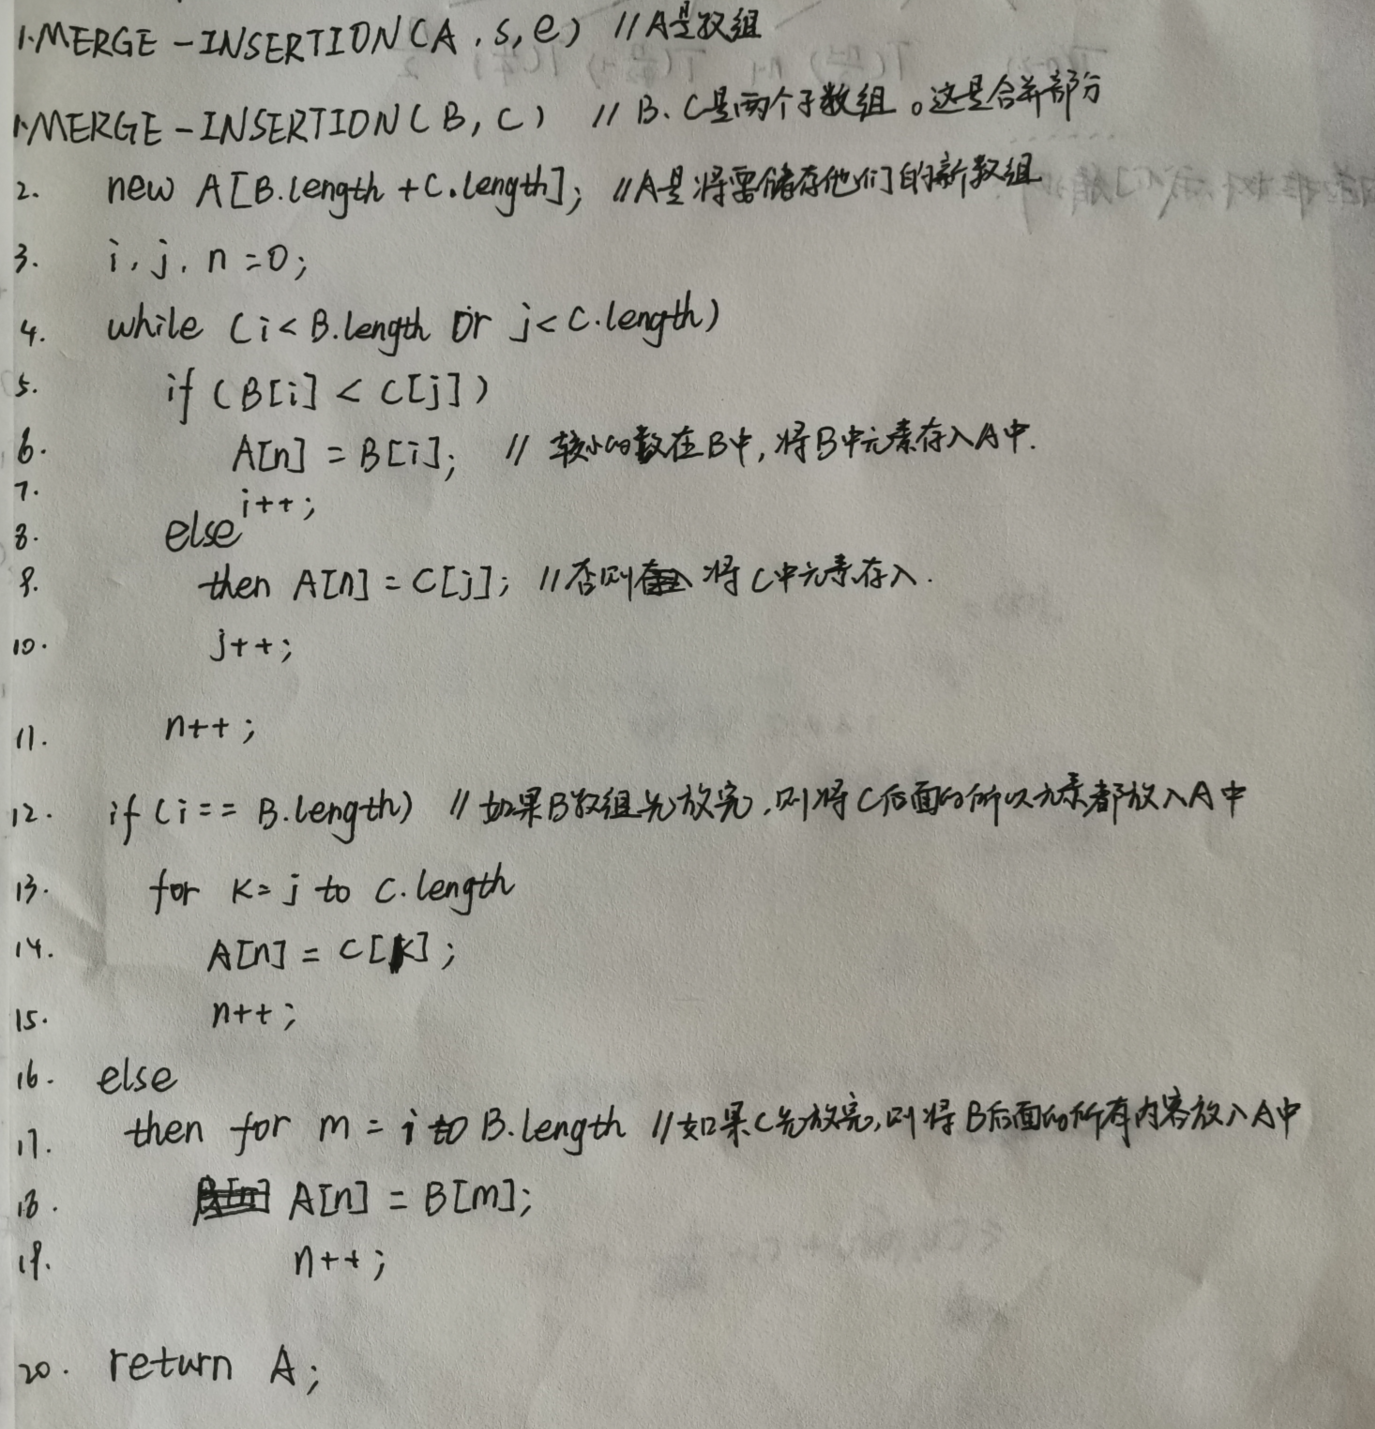 1.MERGE-INSERTION(A,s,e) //A是数组
1.MERGE-INSERTION(B,C) //B、C是两个子数组。这是合并部分
2. new A[B.length+C.length]; //A是将需储存他们的新数组
3. i,j,n=0;
4. while (i<B.length or j<C.length)
5. if (B[i] < C[j])
6. A[n] = B[i]; // 较小的数在B中,将B中元素存入A中.
7. i++;
8. else
9. then A[n] = C[j]; //否则 将C中元素存入.
10. j++;
11. n++;
12. if (i == B.length) //如果B数组先放完,则将C后面的所以元素都放入A中
13. for k=j to C.length
14. A[n] = C[k];
15. n++;
16. else
17. then for m = i to B.length //如果C先放完,则将B后面的所有内容放入A中
18. A[n] = B[m];
19. n++;
20. return A;